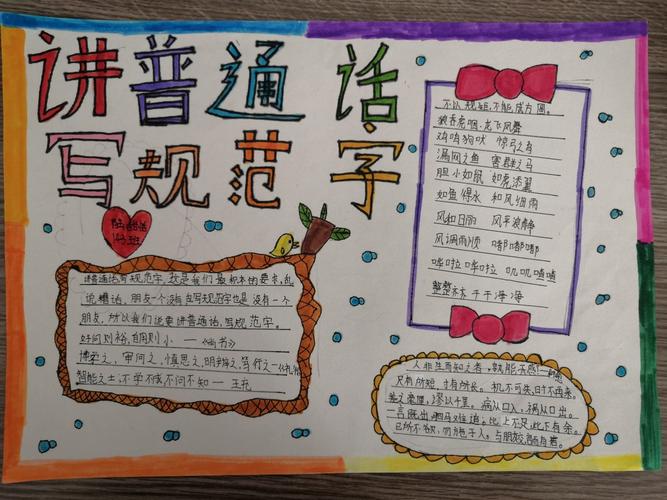 讲普通话
写规范字
班
讲普通话,写规范字,这是我们最根本的要求,乱
说糟话,朋友一个没有,乱写规范字也是没有一个
朋友,所以我们说要讲普通话,写规范字。
好问则裕,自用则小 ——《尚书》
博学之,审问之,慎思之,明辨之,笃行之——《礼记》
智能之士,不学不成,不问不知 —— 王充
不以规矩,不能成方圆。
狼吞虎咽 龙飞凤舞
鸡鸣狗吠 惊弓之鸟
漏网之鱼 害群之马
胆小如鼠 如虎添翼
如鱼得水 和风细雨
风和日丽 风平浪静
风调雨顺 嘟嘟嘟
哗啦哗啦 叽叽喳喳
整整齐齐 干干净净
人非生而知之者,孰能无惑——韩愈
尺有所短,寸有所长。机不可失,时不再来。
差之毫厘,谬以千里。病从口入,祸从口出。
一言既出,驷马难追。比上不足,比下有余。
己所不欲,勿施于人。与朋友交,